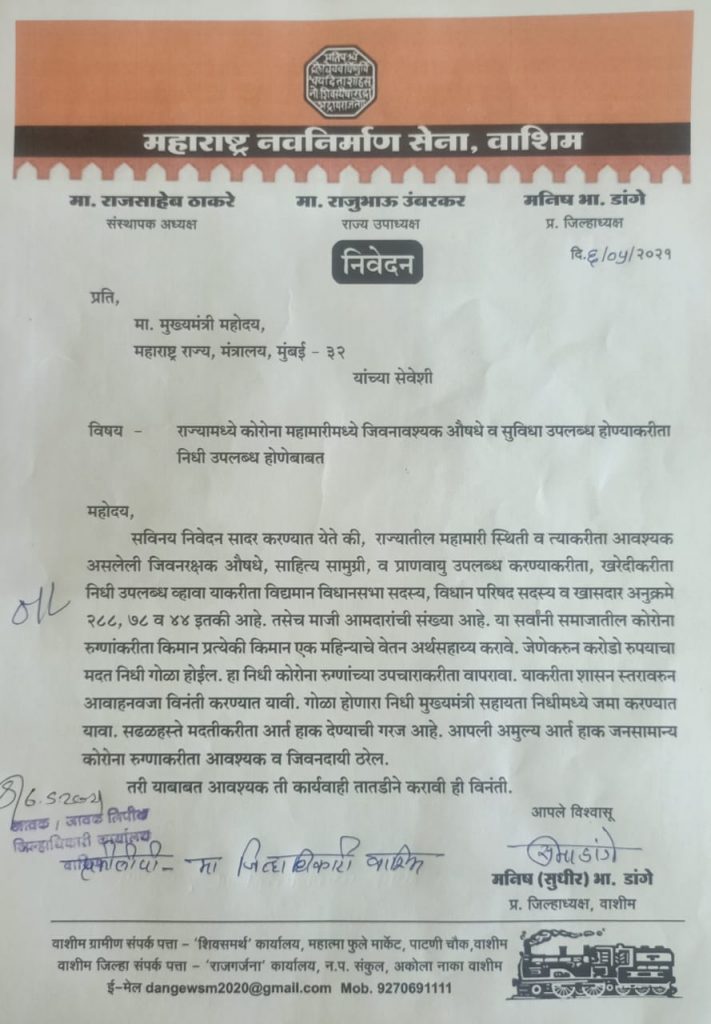 महाराष्ट्र नवनिर्माण सेना, वाशिम
मा. राजसाहेब ठाकरे मा. राजुभाऊ उंबरकर मनिष भा. डांगे
संस्थापक अध्यक्ष राज्य उपाध्यक्ष प्र. जिल्हाध्यक्ष
निवेदन
दि.६/०५/२०२१
प्रति,
मा. मुख्यमंत्री महोदय,
महाराष्ट्र राज्य, मंत्रालय, मुंबई - ३२
यांच्या सेवेशी
विषय - राज्यामध्ये कोरोना महामारीमध्ये जिवनावश्यक औषधे व सुविधा उपलब्ध होण्याकरीता
निधी उपलब्ध होणेबाबत
महोदय,
सविनय निवेदन सादर करण्यात येते की, राज्यातील महामारी स्थिती व त्याकरीता आवश्यक
असलेली जिवनरक्षक औषधे, साहित्य सामुग्री, व प्राणवायु उपलब्ध करण्याकरीता, खरेदीकरीता
निधी उपलब्ध व्हावा याकरीता विद्यमान विधानसभा सदस्य, विधान परिषद सदस्य व खासदार अनुक्रमे
२८८, ७८ व ४४ इतकी आहे. तसेच माजी आमदारांची संख्या आहे. या सर्वांनी समाजातील कोरोना
रुग्णांकरीता किमान प्रत्येकी किमान एक महिन्याचे वेतन अर्थसहाय्य करावे. जेणेकरुन करोडो रुपयाचा
मदत निधी गोळा होईल. हा निधी कोरोना रुग्णांच्या उपचाराकरीता वापरावा. याकरीता शासन स्तरावरुन
आवाहनवजा विनंती करण्यात यावी. गोळा होणारा निधी मुख्यमंत्री सहायता निधीमध्ये जमा करण्यात
यावा. सढळहस्ते मदतीकरीता आर्त हाक देण्याची गरज आहे. आपली अमुल्य आर्त हाक जनसामान्य
कोरोना रुग्णाकरीता आवश्यक व जिवनदायी ठरेल.
तरी याबाबत आवश्यक ती कार्यवाही तातडीने करावी ही विनंती.
आवक / जावक लिपीक
जिल्हाधिकारी कार्यालय
मा जिल्हाधिकारी वाशिम
आपले विश्वासू
मनिष (सुधीर) भा. डांगे
प्र. जिल्हाध्यक्ष, वाशीम
वाशीम ग्रामीण संपर्क पत्ता - 'शिवसमर्थ' कार्यालय, महात्मा फुले मार्केट, पाटणी चौक,वाशीम
वाशीम जिल्हा संपर्क पत्ता - 'राजगर्जना' कार्यालय, न.प. संकुल, अकोला नाका वाशीम
ई-मेल dangewsm2020@gmail.com Mob. 9270691111